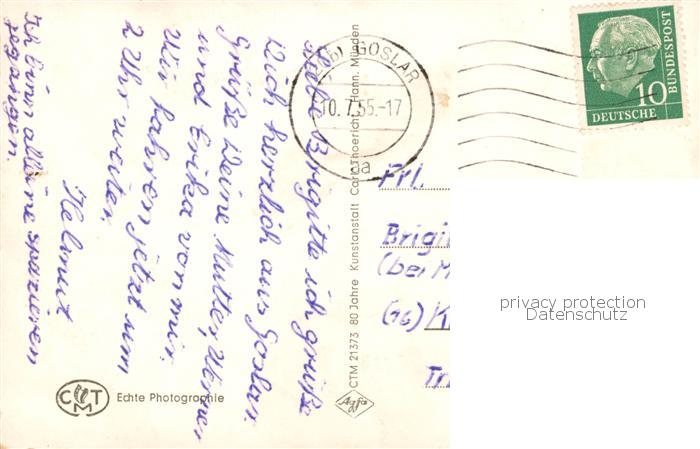 Liebe Brigitte ich grüße
Dich herzlich aus Goslar.
Grüße Deine Mutter, Werner
und Erika von mir.
Wir fahren jetzt um
2 Uhr weiter.
Helmut
Ich bin alleine spazieren
gegangen.
CTM
Echte Photographie
CTM 21373 80 Jahre Kunstanstalt Carl Thoericht, Hann. Münden
Agfa
GOSLAR
10.7.55.-17
a
10
DEUTSCHE
BUNDESPOST
Frl.
Brigi
(bei M
(16) K
privacy protection
Datenschutz